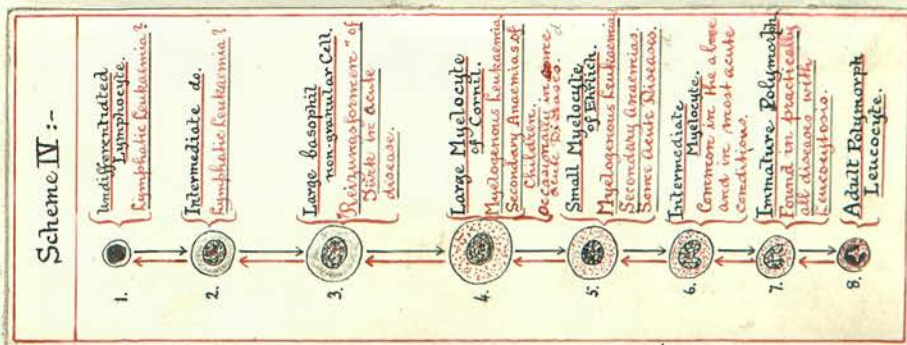 Scheme IV :-
1.
Undifferentiated
Lymphocyte.
Lymphatic Leukaemia?
2.
Intermediate do.
Lymphatic Leukaemia?
3.
Large basophil
non-granular Cell.
"Reizungsformen" of
Türk in acute
disease.
4.
Large Myelocyte
of Cornil.
Myelogenous Leukaemia
Secondary Anaemias of
Children.
Occasionally in some
acute Diseases.
5.
Small Myelocyte
of Ehrlich.
Myelogenous Leukaemia
Secondary Anaemias.
Some Acute Diseases.
6.
Intermediate
Myelocyte.
Common in the above
and in most acute
conditions.
7.
Immature Polymorph
Found in practically
all diseases with
Leucocytosis.
8.
Adult Polymorph
Leucocyte.